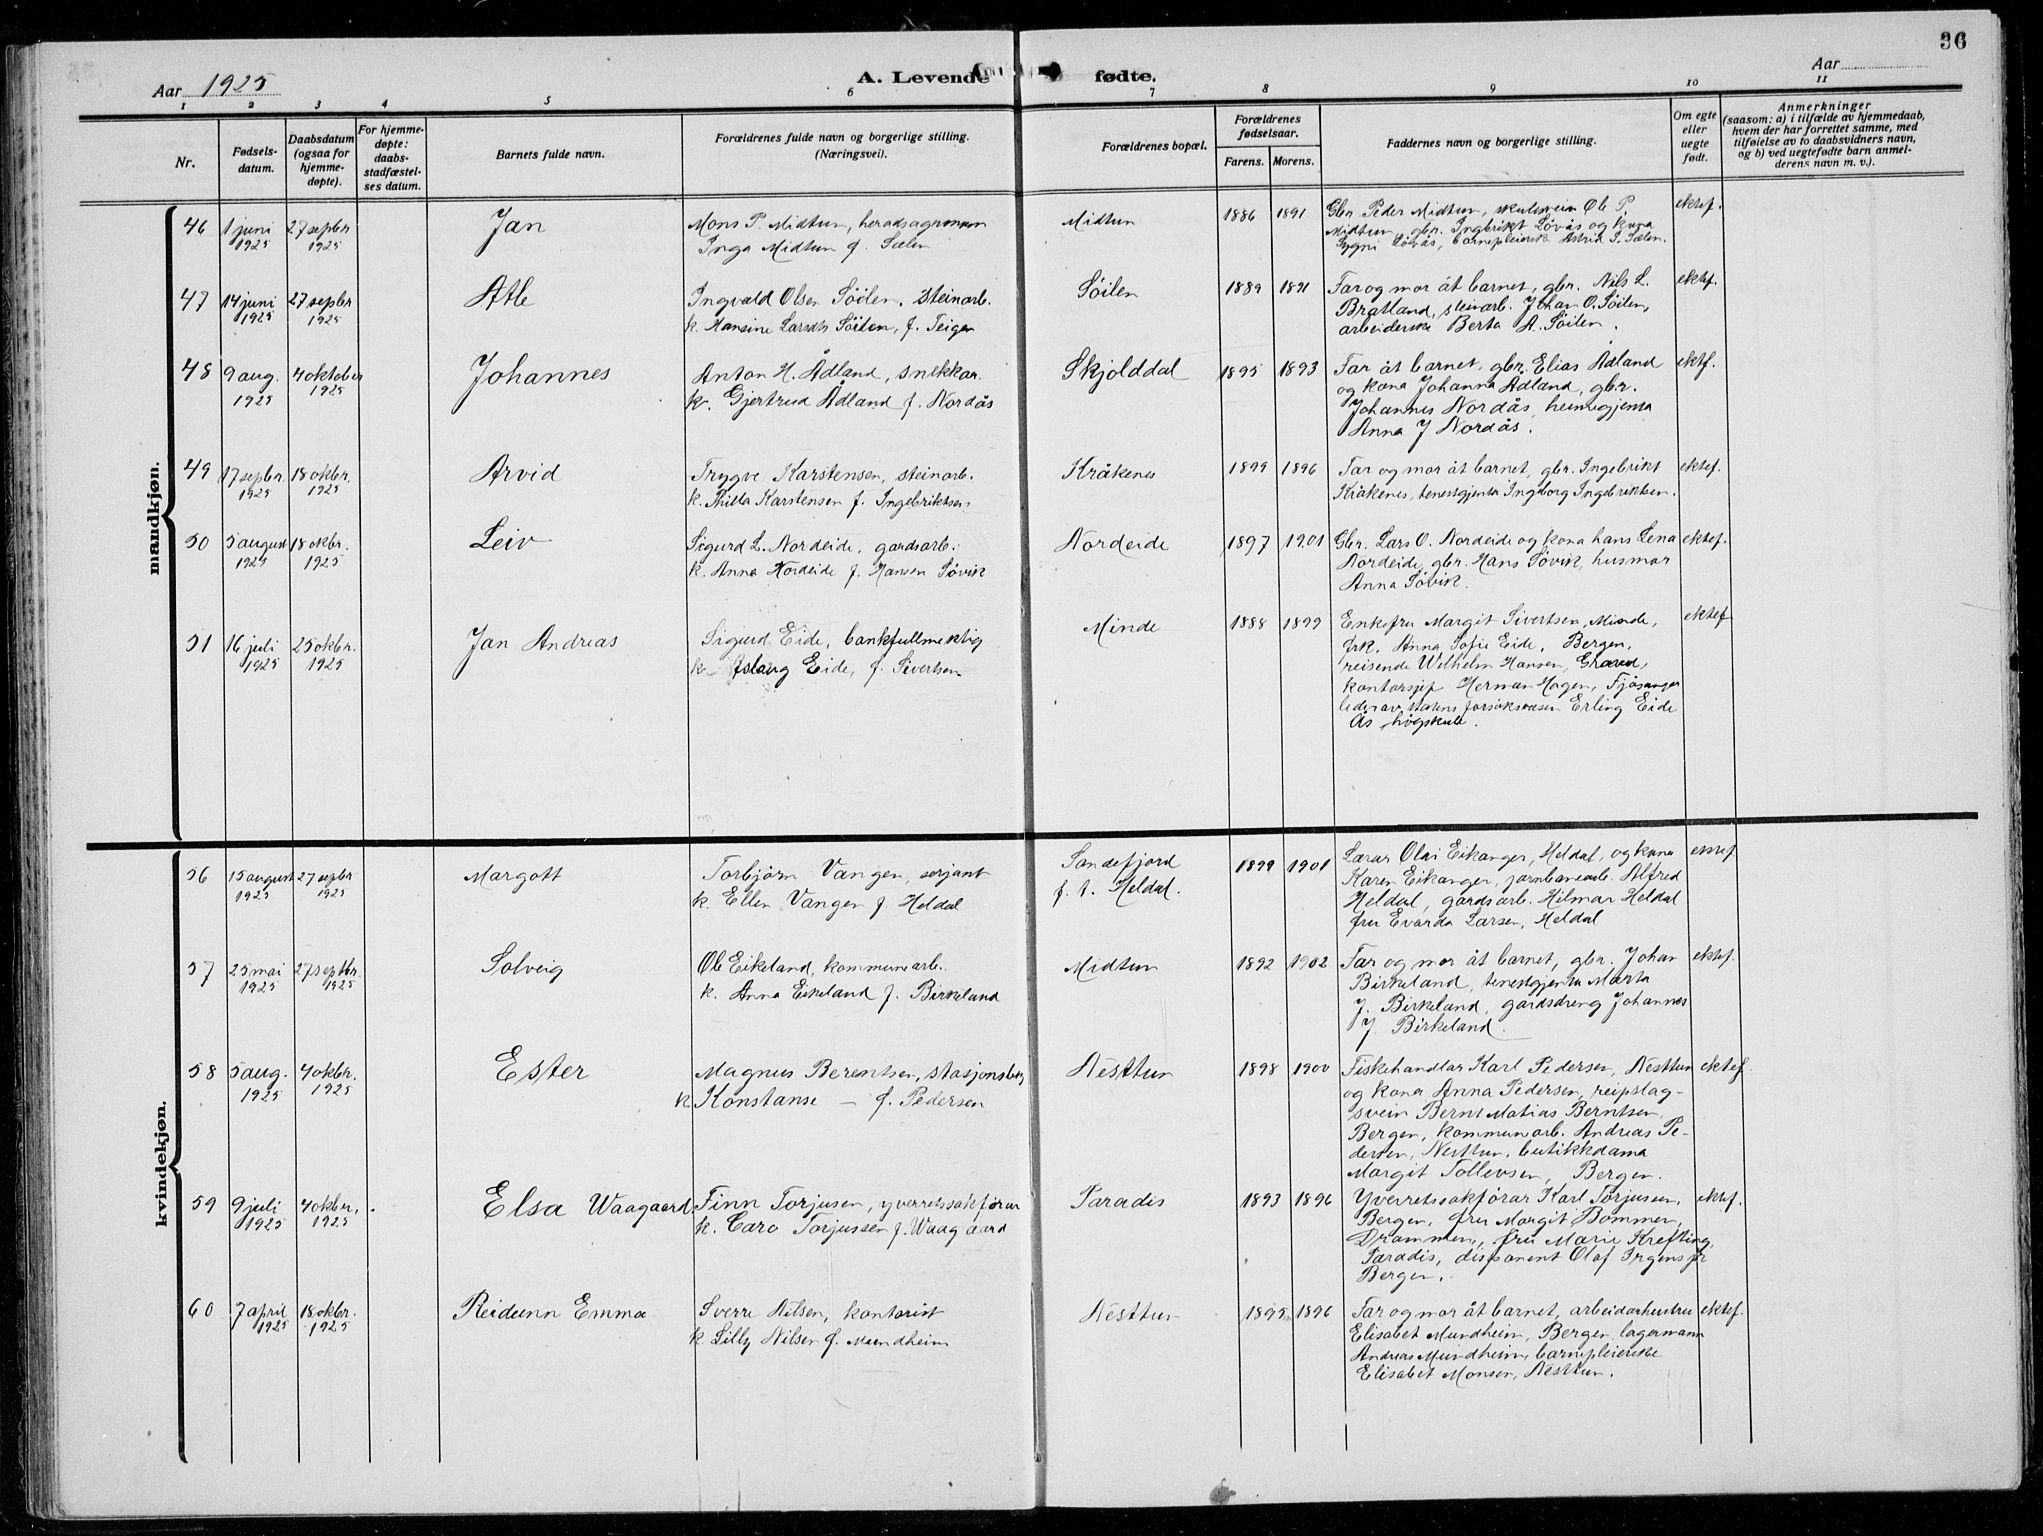 36
Aar 1925
A. Levende fødte.
Aar
1 2 3 4 5 6 7 8 9 10 11
Nr.
Fødsels-
datum.
Daabsdatum
(ogsaa for
hjemme-
døpte).
For hjemme-
døpte:
daabs-
stadfæstel-
ses datum.
Barnets fulde navn.
Forældrenes fulde navn og borgerlige stilling.
(Næringsvei).
Forældrenes bopæl.
Forældrenes
fødselsaar.
Farens. Morens.
Faddernes navn og borgerlige stilling.
Om egte
eller
uegte
født.
Anmerkninger
(saasom: a) i tilfælde av hjemmedaab,
hvem der har forrettet samme, med
tilføielse av to daabsvidners navn,
og b) ved uegtefødte barn anmel-
derens navn m. v.).
mandkjøn.
46 1 juni 1925 27 septbr 1925 Jan
Mons P. Midtun, heradsagronom
Inga Midtun f. Sælen
Midtun 1886 1891
Gbr. Peder Midtun, skulesvein Ole P.
Midtun, gbr. Ingbrikt Løvås og kona
Løvås, barnepleierske Astrid S. Sælen.
ektef.
47 14 juni 1925 27 septbr 1925 Atle
Ingvald Olsen Söilen, steinarb.
k. Hansine Larsdtr Söilen, f. Teigen
Söilen 1889 1891
Far og mor åt barnet, gbr. Nils L.
Bratland, steinarb. Johan O. Söilen,
arbeiderske Berta A. Söilen.
ektef.
48 9 aug. 1925 4 oktober 1925 Johannes
Anton H. Ådland, snekkar.
k. Gjertrud Ådland f. Nordås
Skjolddal 1895 1893
Far åt barnet, gbr. Elias Ådland
og kona Johanna Ådland, gbr.
Johannes Nordås, heimegjenta
Anna J Nordås.
ektf.
49 17 septbr. 1925 18 oktbr. 1925 Arvid
Trygve Karstensen, steinarb.
k. Thilla Karstensen f. Ingebriktsen
Kråkenes 1899 1896
Far og mor åt barnet, gbr. Ingebrikt
Kråkenes, tenestgjenta Ingborg Ingebriktsen.
ektef.
50 5 august 1925 18 oktbr. 1925 Leiv
Sigurd L. Nordeide, gardsarb.
k. Anna Nordeide f. Hansen Søvik
Nordeide 1897 1901
Gbr. Lars O. Nordeide og kona hans Lena
Nordeide, gbr. Hans Søvik, husmor
Anna Søvik.
ektef.
51 16 juli 1925 25 oktbr. 1925 Jan Andreas
Sigurd Eide, bankfullmektig
k. Aslaug Eide, f. Sivertsen
Minde 1888 1899
Enkefru Margit Sivertsen, Minde,
frk. Anna Sofie Eide, Bergen,
reisende Wilhelm Hansen,
kontorsjef Herman Hagen, Fjøsanger
leder av statens forsøksvesen Erling Eide
Ås högskule.
ektef
kvindekjøn.
56 15 august 1925 27 septbr 1925 Margott
Torbjørn Vangen, serjant
k. Ellen Vangen f Heldal
Sandefjord
f. t. Heldal.
1899 1901
Lærar Olai Eikanger, Heldal, og kona
Karen Eikanger, jarnbanearb. Alfred
Heldal, gardsarb. Hilmar Heldal
fru Evarda Larsen, Heldal
ektef
57 25 mai 1925 27 septbr. 1925 Solveig
Ole Eikeland, kommunearb.
k. Anna Eikeland f. Birkeland
Midtun 1892 1902
Far og mor åt barnet, gbr. Johan
Birkeland, tenestgjenta Marta
J. Birkeland, gardsdreng Johannes
J. Birkeland.
ektef.
58 5 aug. 1925 4 oktbr. 1925 Ester
Magnus Berentsen, stasjonsbetj
k. Konstanse — f. Pedersen
Nesttun 1898 1900
Fiskehandlar Karl Pedersen, Nesttun
og kona Anna Pedersen, reipslag-
svein Bernt Matias Berntsen,
Bergen, kommunearb. Andreas Pe-
dersen, Nesttun, butikkdama
Margit Tollevsen, Bergen.
ektef
59 9 juli 1925 4 oktbr. 1925 Elsa Waagaard
Finn Torjusen, yverretssakförar
k. Caro Torjussen f. Waagaard
Paradis 1893 1896
Yverretssakförar Karl Torjusen,
Bergen, fru Margit Bommen,
Drammen, fru Marie Krefting,
Paradis, disponent Olaf Irgens jr
Bergen.
ektef.
60 7 april 1925 18 oktbr. 1925 Reidunn Emma
Sverre Nilsen, kontorist
k. Lilly Nilsen f. Mundheim
Nesttun 1895 1896
Far og mor åt barnet, arbeidarhustru
Elisabet Mundheim, Bergen, lagermann
Andreas Mundheim, barnepleierske
Elisabet Monsen, Nesttun.
ektef.